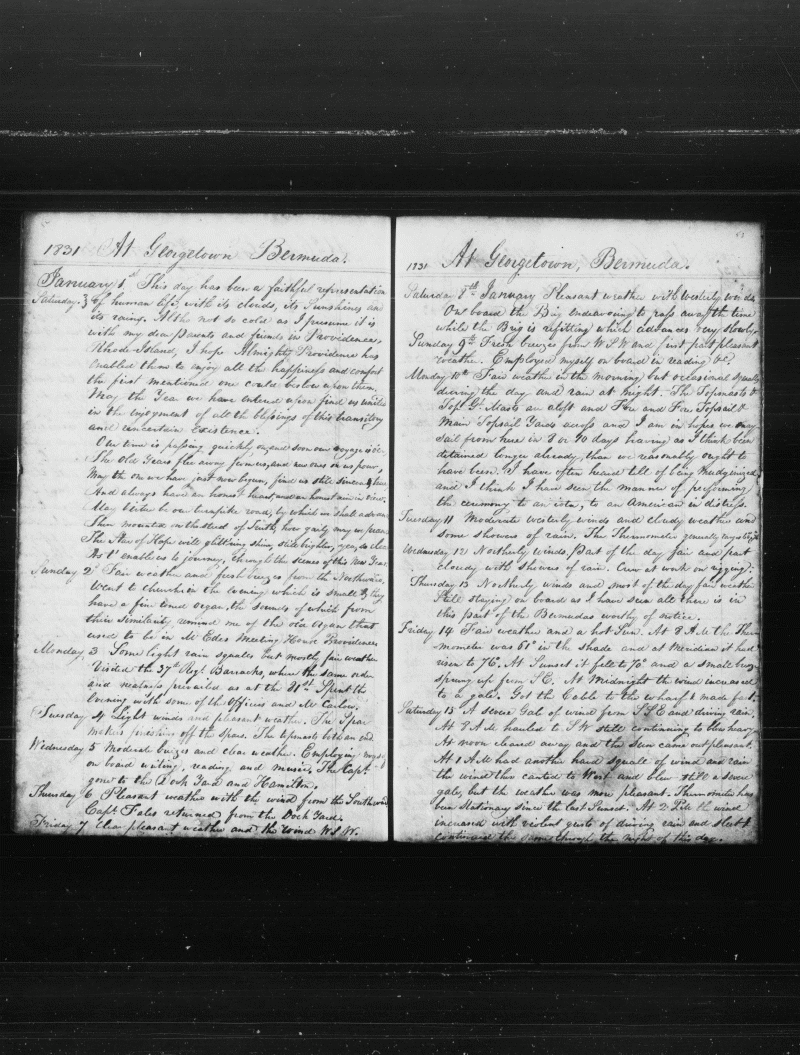 1831 At Georgetown Bermuda.
January 1st This day has been a faithful representation
Saturday. } of human life, with its clouds, its Sunshines and
its rains. Altho not so cold as I presume it is
with my dear parents and friends in Providence,
Rhode-Island, I hope Almighty Providence has
enabled them to enjoy all the happiness and comfort
the first mentioned one could bestow upon them.
May the Year we have entered upon find us united
in the enjoyment of all the blessings of this transitory
and uncertain existence.
Our time is passing quickly on, and soon our voyage is
The old Years flee away from us, and new ones on us pour,
May the one we have just now begun, find us still sincere &
And always have an honest heart, and an honest aim in view.
May virtue be our turnpike road, by which we shall advance
Then mounted on the steed of Truth, how gaily may we prance
The Star of Hope will glittering shine, still brighter, yea, so clear
As t' enable us to journey, through the scenes of this New Year.
Sunday 2d Fair weather and fresh breezes from the Northward.
Went to church in the evening which is small & they
have a fine toned organ, the sounds of which from
their similarity remind me of the old organ that
used to be in Mr Edes Meeting House Providence
Monday 3 Some light rain squalls but mostly fair weather
Visited the 37th Regt Barracks, where the same order
and neatness prevailed as at the 81st. Spent the
Evening with some of the Officers and Mr Carlow.
Tuesday 4 Light winds and pleasant weather. The Spar
makers finishing off the spars. The topmasts both an end
Wednesday 5 Moderate breezes and clear weather. Employing myself
on board writing, reading and music. The Capt.
gone to the Dock Yard and Hamilton.
Thursday 6 Pleasant weather with the wind from the Southward
Capt Fales returned from the Dock Yard.
Friday 7 Clear pleasant weather and the wind W.S.W.
1831 At Georgetown, Bermuda.
Saturday 8th January Pleasant weather with Westerly winds
On board the Brig endeavoring to pass away the time
while the Brig is refitting which advances very slowly.
Sunday 9th Fresh breezes from W S W and first part pleasant
weather. Employed myself on board in reading &c.
Monday 10th Fair weather in the morning but occasional squalls
during the day and rain at night. The Topmasts &
Topt Gt Masts are aloft and Fore and Fore Topsail &
Main Topsail Yards across and I am in hopes we may
sail from here in 8 or 10 days having as I think been
detained longer already, than we reasonably ought to
have been. I have often heard tell of being Mudgeonized
and I think I have seen the manner of performing
the ceremony to an iota, to an American in distress.
Tuesday 11 Moderate westerly winds and cloudy weather and
some showers of rain. The Thermometer generally ranges
Wednesday 12 Northerly winds, Part of the day fair and part
cloudy with showers of rain. Crew at work on rigging.
Thursday 13 Northerly winds and most of the day fair weather
Still staying on board as I have seen all there is in
this part of the Bermudas worthy of notice.
Friday 14 Fair weather and a hot Sun. At 8 A M the Ther-
mometer was 61° in the shade and at Meridian it had
risen to 76. At Sunset it fell to 70° and a small breeze
sprung up from S E. At Midnight the wind increased
to a gale. Got the Cable to the wharf & made fast.
Saturday 15 A severe Gale of wind from S S E and driving rain.
At 8 A M hauled to S W still continuing to blow heavy.
At noon cleared away and the Sun came out pleasant.
At 1 A M had another hard squall of wind and rain
the wind then canted to West and blew still a severe
gale, but the weather was more pleasant. Thermometer has
been Stationary since the last Sunset. At 2 P M the wind
increased with violent gusts of driving rain and sleet &
continued the same through the night of this day.